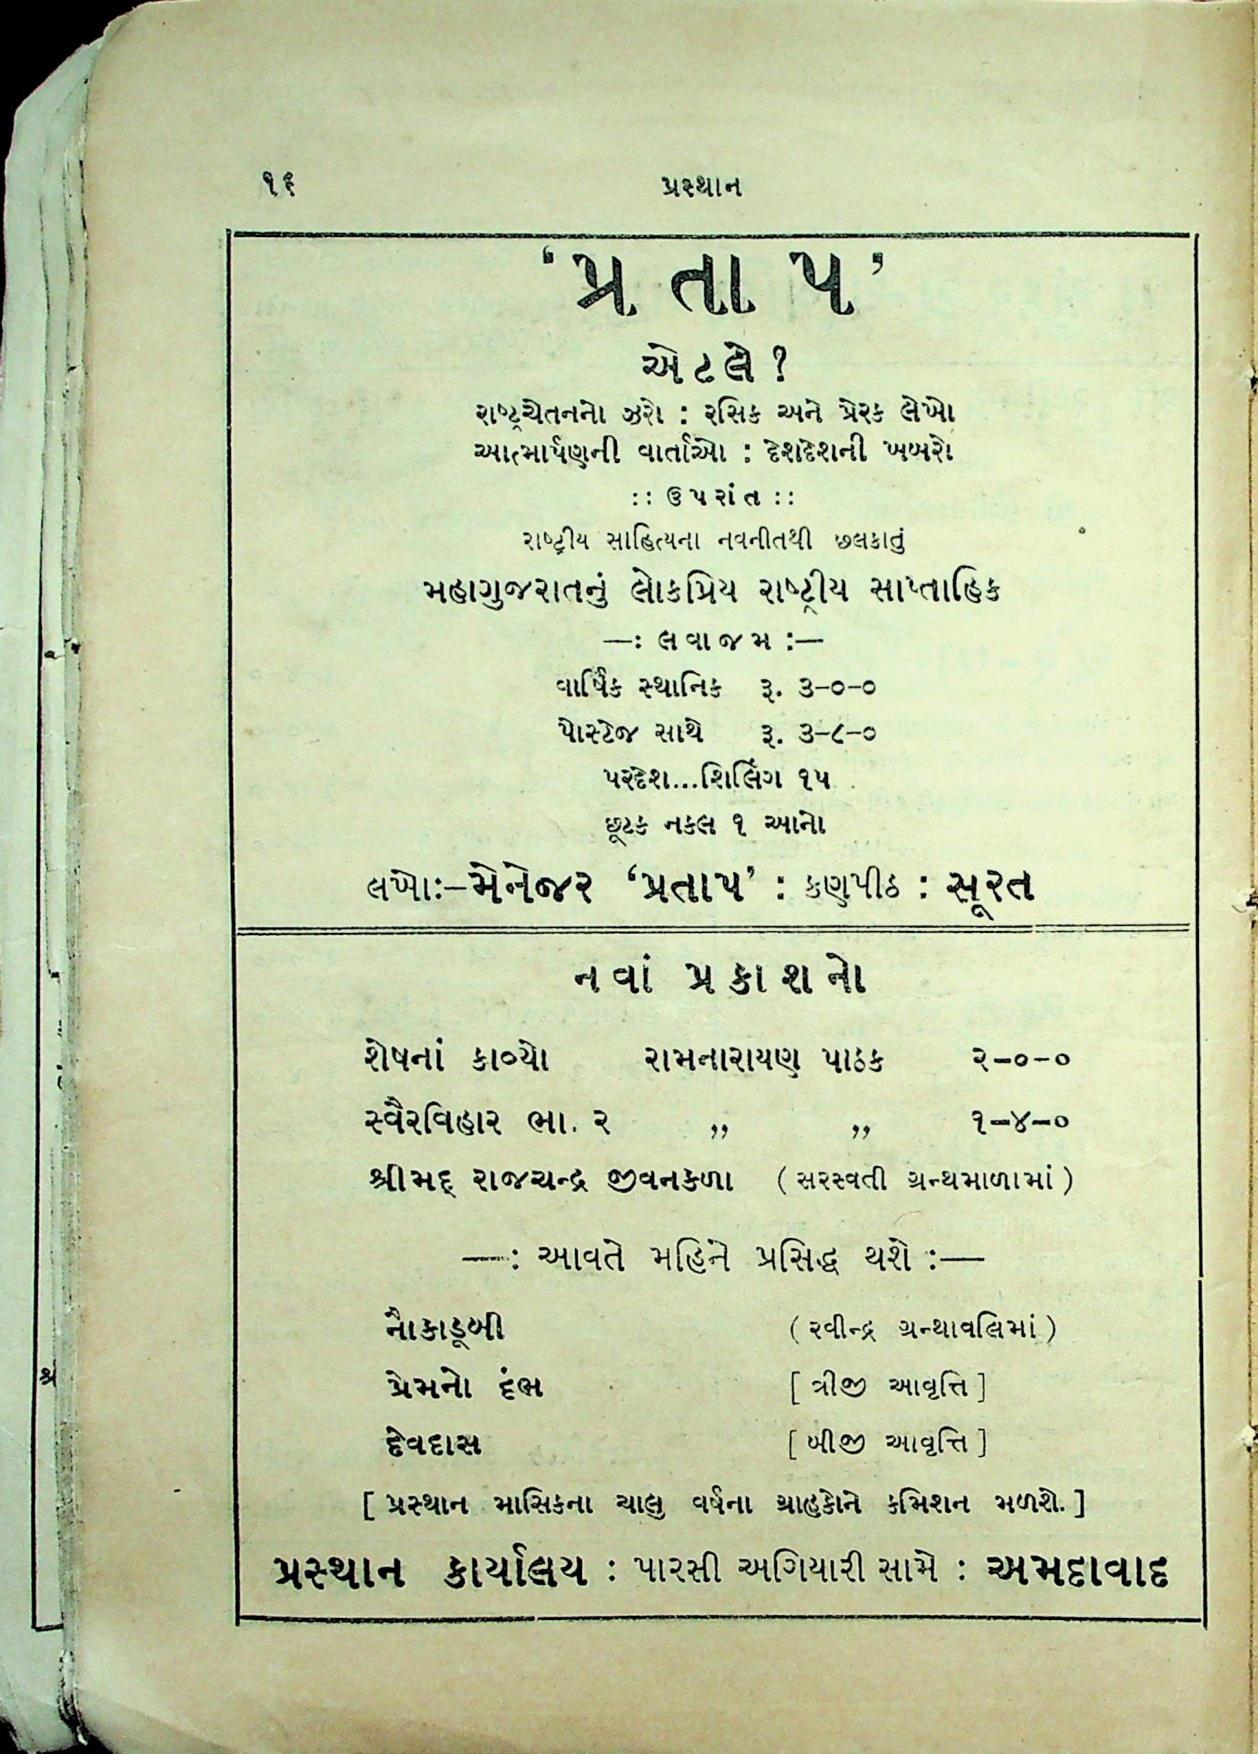 ૧૬ પ્રસ્થાન
‘પ્ર તા પ’
એટલે?
રાષ્ટ્રચેતનનો ઝરો : રસિક અને પ્રેરક લેખો
આત્માર્પણની વાર્તાઓ : દેશદેશની ખબરો
:: ઉ પ રાં ત ::
રાષ્ટ્રીય સાહિત્યના નવનીતથી છલકાતું
મહાગુજરાતનું લોકપ્રિય રાષ્ટ્રીય સાપ્તાહિક
—: લ વા જ મ :—
વાર્ષિક સ્થાનિક રૂ. ૩-૦-૦
પોસ્ટેજ સાથે રૂ. ૩-૮-૦
પરદેશ...શિલિંગ ૧૫
છૂટક નકલ ૧ આનો
લખોઃ—મેનેજર ‘પ્રતાપ’ : કણપીઠ : સૂરત
ન વાં પ્ર કા શ નો
શેષનાં કાવ્યો રામનારાયણ પાઠક ૨-૦-૦
સ્વૈરવિહાર ભા. ૨ ,, ,, ૧-૪-૦
શ્રીમદ્ રાજચન્દ્ર જીવનકળા (સરસ્વતી ગ્રન્થમાળામાં)
—: આવતે મહિને પ્રસિદ્ધ થશે :—
નૌકાડૂબી (રવીન્દ્ર ગ્રન્થાવલિમાં)
પ્રેમનો દંભ [ત્રીજી આવૃત્તિ]
દેવદાસ [બીજી આવૃત્તિ]
[પ્રસ્થાન માસિકના ચાલુ વર્ષના ગ્રાહકોને કમિશન મળશે.]
પ્રસ્થાન કાર્યાલય : પારસી અગિયારી સામે : અમદાવાદ